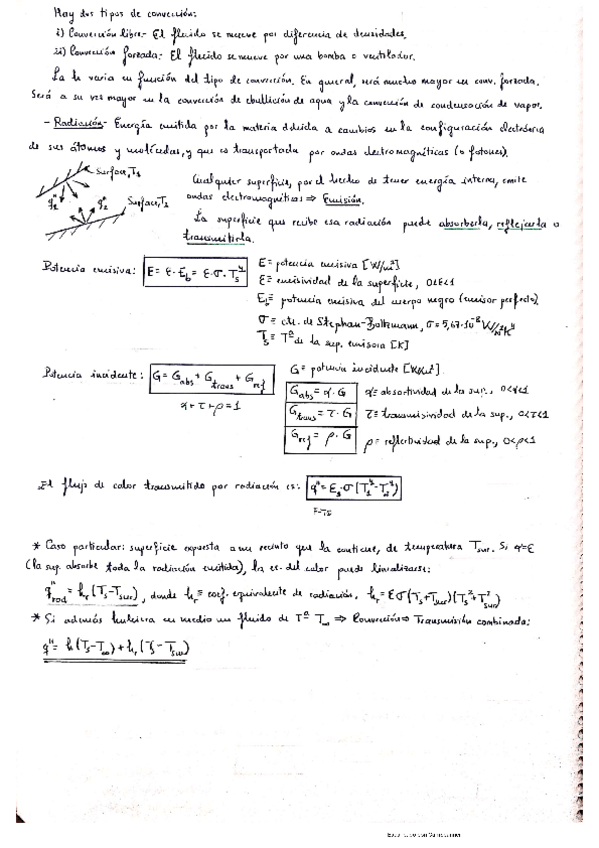 Hay dos tipos de convección:
i) Convección libre.- El fluido se mueve por diferencia de densidades.
ii) Convección forzada: El fluido se mueve por una bomba o ventilador.
La h varía en función del tipo de convección. En general, será mucho mayor en conv. forzada.
Será a su vez mayor en la convección de ebullición de agua y la convección de condensación de vapor.
- Radiación- Energía emitida por la materia debida a cambios en la configuración electrónica
de sus átomos y moléculas, y que es transportada por ondas electromagnéticas (o fotones).
Surface, T₁
q"₁ q"₂ Surface, T₂
Cualquier superficie, por el hecho de tener energía interna, emite
ondas electromagnéticas ⇒ Emisión.
La superficie que recibe esa radiación puede absorberla, reflejarla o
transmitirla.
Potencia emisiva: E = ε·E_b = ε·σ·T_s⁴
E ≡ potencia emisiva [W/m²]
ε ≡ emisividad de la superficie, 0<ε<1
E_b ≡ potencia emisiva del cuerpo negro (emisor perfecto)
σ ≡ cte. de Stephan-Boltzmann, σ = 5,67·10⁻⁸ W/m²K⁴
T_s ≡ Tª de la sup. emisora [K]
Potencia incidente: G = G_abs + G_trans + G_ref
α + τ + ρ = 1
G ≡ potencia incidente [W/m²]
G_abs = α·G α ≡ absortividad de la sup., 0<α<1
G_trans = τ·G τ ≡ transmisividad de la sup., 0<τ<1
G_ref = ρ·G ρ ≡ reflectividad de la sup., 0<ρ<1
El flujo de calor transmitido por radiación es: q" = ε_s·σ(T₁⁴-T₂⁴)
* Caso particular: superficie expuesta a un recinto que la contiene, de temperatura T_sur. Si α=ε
(la sup. absorbe toda la radiación emitida), la ec. del calor puede linealizarse:
q"_rad = h_r(T_s-T_sur), donde h_r ≡ coef. equivalente de radiación, h_r = εσ(T_s+T_sur)(T_s²+T_sur²)
* Si además hubiera en medio un fluido de Tª T∞ ⇒ Convección ⇒ Transmisión combinada:
q" = h(T_s-T∞)+h_r(T_s-T_sur)